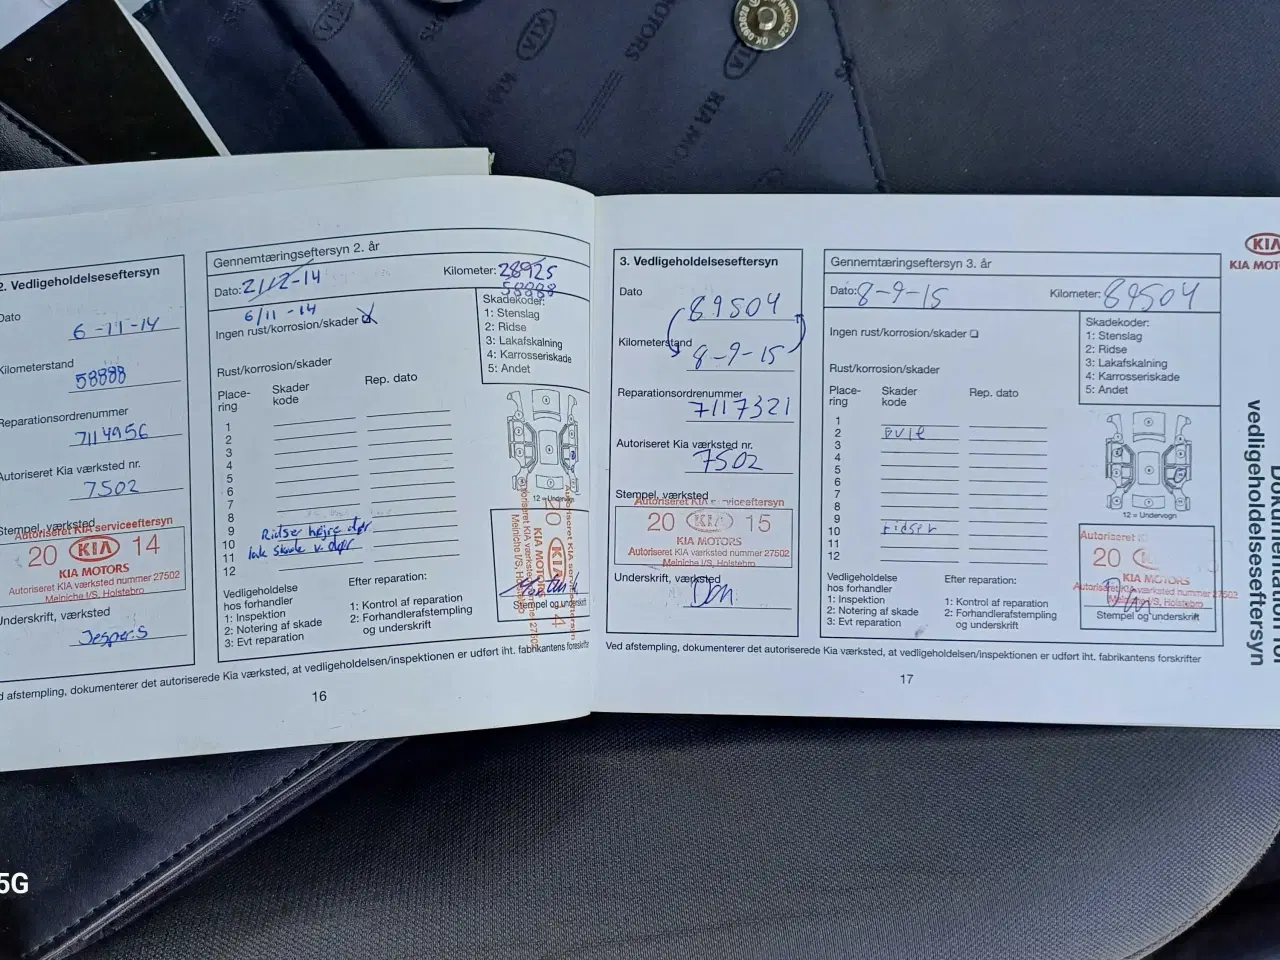 KIA MOTORS
KIA
2. Vedligeholdelseseftersyn
Dato
6-11-14
Kilometerstand
58888
Reparationsordrenummer
7114956
Autoriseret Kia værksted nr.
7502
Stempel, værksted
Autoriseret KIA serviceeftersyn
20 KIA 14
KIA MOTORS
Autoriseret KIA værksted nummer 27502
Mejniche I/S, Holstebro
Underskrift, værksted
Jesper S
Gennemtæringseftersyn 2. år
Dato: 21/2-14
Kilometer: 28925
58888
6/11-14
Ingen rust/korrosion/skader
Skadekoder:
1: Stenslag
2: Ridse
3: Lakafskalning
4: Karrosseriskade
5: Andet
Rust/korrosion/skader
Place-
ring
Skader
kode
Rep. dato
1
2
3
4
5
6
7
8
9
10
11
12
Ridser højre dør
lak skade v. dør
12 = Undervogn
Vedligeholdelse
hos forhandler
1: Inspektion
2: Notering af skade
3: Evt reparation
Efter reparation:
1: Kontrol af reparation
2: Forhandlerafstempling
og underskrift
Stempel og underskrift
afstempling, dokumenterer det autoriserede Kia værksted, at vedligeholdelsen/inspektionen er udført iht. fabrikantens forskrifter
16
3. Vedligeholdelseseftersyn
Dato
89504
Kilometerstand
8-9-15
Reparationsordrenummer
7117321
Autoriseret Kia værksted nr.
7502
Stempel, værksted
Autoriseret KIA serviceeftersyn
20 KIA 15
KIA MOTORS
Autoriseret KIA værksted nummer 27502
Mejniche I/S, Holstebro
Underskrift, værksted
Gennemtæringseftersyn 3. år
Dato: 8-9-15
Kilometer: 89504
Ingen rust/korrosion/skader
Skadekoder:
1: Stenslag
2: Ridse
3: Lakafskalning
4: Karrosseriskade
5: Andet
Rust/korrosion/skader
Place-
ring
Skader
kode
Rep. dato
1
2 Bule
3
4
5
6
7
8
9
10 ridser
11
12
12 = Undervogn
Autoriseret
20
KIA MOTORS
Autoriseret KIA værksted nummer 27502
Mejniche I/S, Holstebro
Stempel og underskrift
Vedligeholdelse
hos forhandler
1: Inspektion
2: Notering af skade
3: Evt reparation
Efter reparation:
1: Kontrol af reparation
2: Forhandlerafstempling
og underskrift
Ved afstempling, dokumenterer det autoriserede Kia værksted, at vedligeholdelsen/inspektionen er udført iht. fabrikantens forskrifter
17
KIA
KIA MOTO
Dokumentation for
vedligeholdelseseftersyn
5G